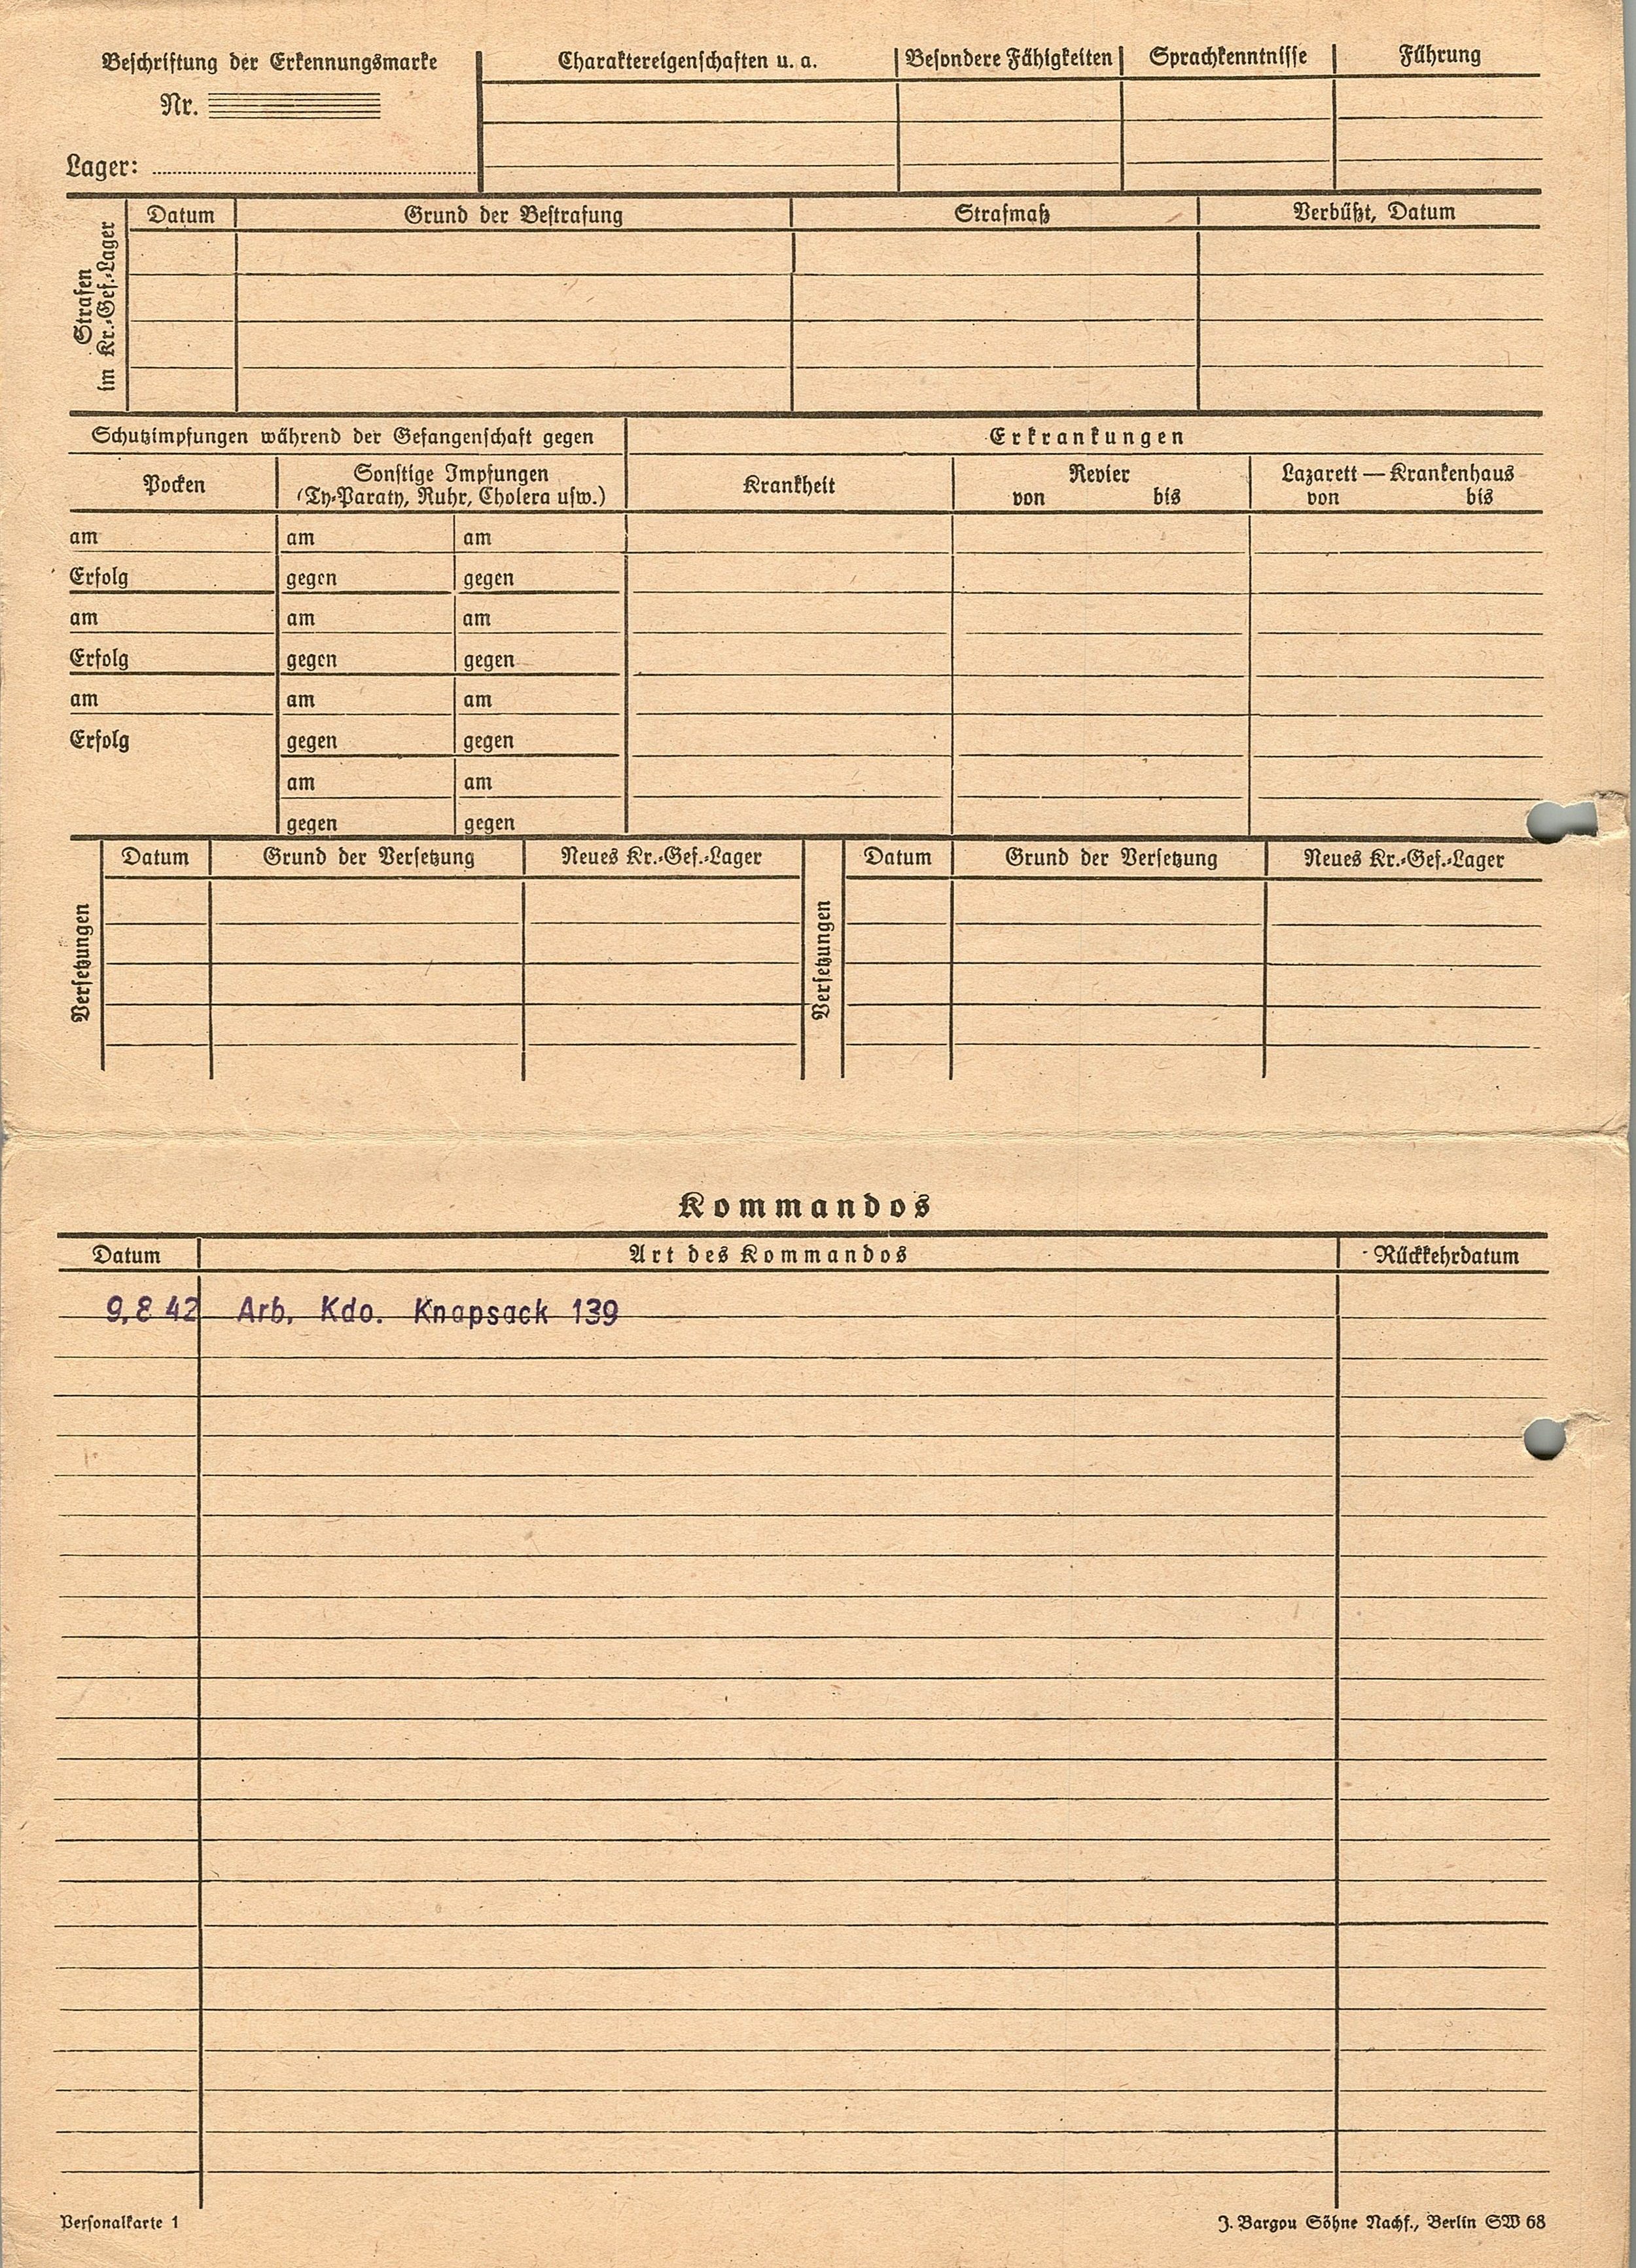 Beschriftung der Erkennungsmarke
Nr.
Lager:
Charaktereigenschaften u. a. Besondere Fähigkeiten Sprachkenntnisse Führung
Strafen
im Kr.-Gef.-Lager
Datum Grund der Bestrafung Strafmaß Verbüßt, Datum
Schutzimpfungen während der Gefangenschaft gegen
Erkrankungen
Pocken
Sonstige Impfungen
(Ty-Paraty, Ruhr, Cholera usw.)
Krankheit
Revier
von bis
Lazarett — Krankenhaus
von bis
am am am
Erfolg gegen gegen
am am am
Erfolg gegen gegen
am am am
Erfolg gegen gegen
am am
gegen gegen
Versetzungen
Datum Grund der Versetzung Neues Kr.-Gef.-Lager
Versetzungen
Datum Grund der Versetzung Neues Kr.-Gef.-Lager
Kommandos
Datum Art des Kommandos Rückkehrdatum
9.8 42 Arb. Kdo. Knapsack 139
Personalkarte 1
J. Bargou Söhne Nachf., Berlin SW 68